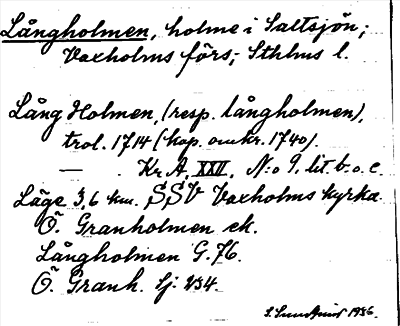 Långholmen, holme i Saltsjön;
Vaxholms förs; Sthlms l.
Lång Holmen, (resp. långholmen),
trol. 1714 (kop. omkr. 1740).
— . Kr.A, XXII, N:o 9, lit. b. o. c.
Läge 3,6 km. SSV Vaxholms kyrka.
Ö. Granholmen ek.
Långholmen G. 76.
Ö. Granh. Lj: 234.
1936.